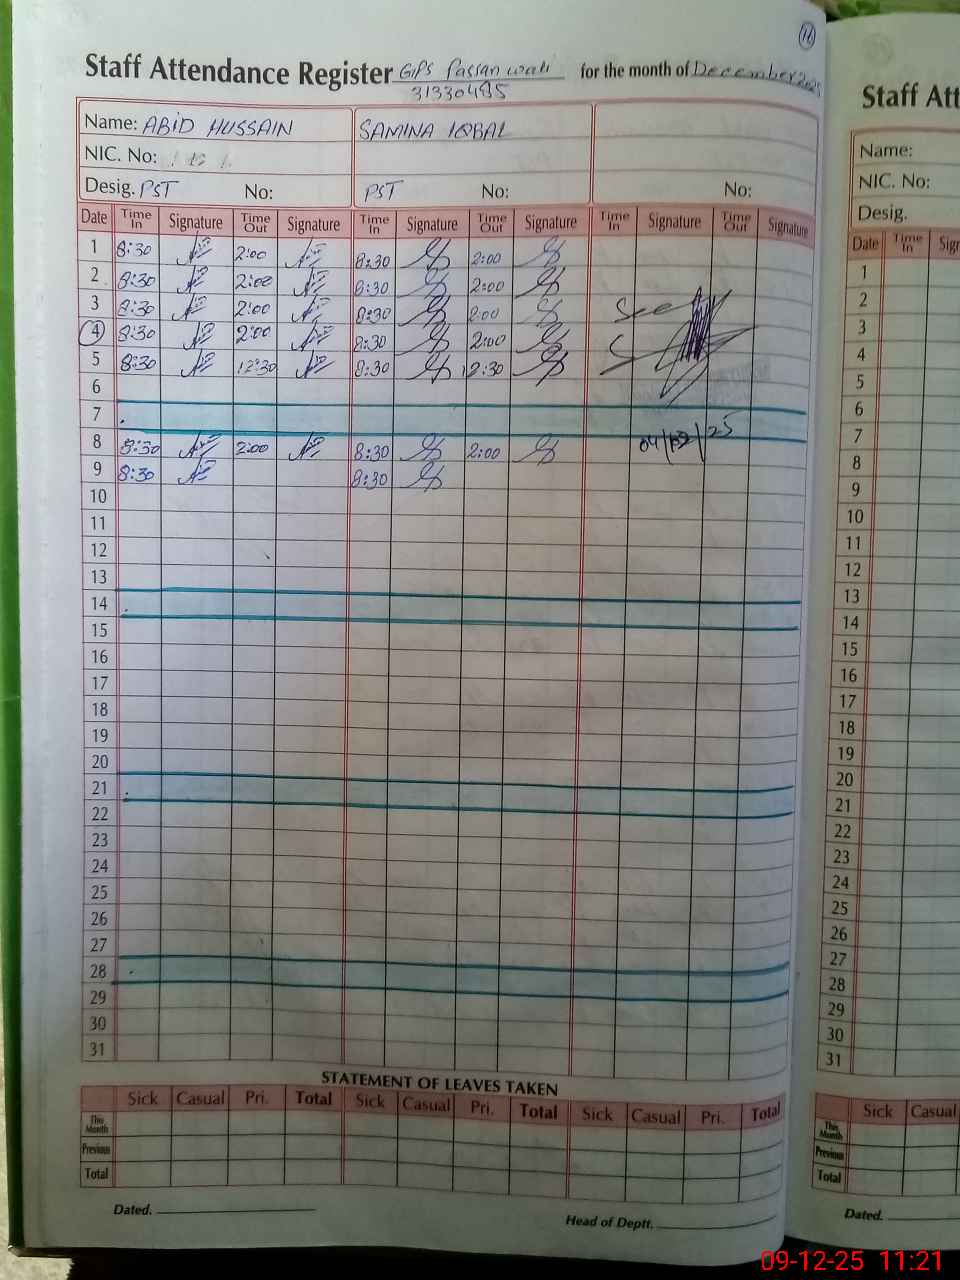 16
Staff Attendance Register GPS Passan wali for the month of December 2025
31330485
Name: ABID HUSSAIN SAMINA IQBAL
NIC. No:
Desig. PST No: PST No: No:
Date Time In Signature Time Out Signature Time In Signature Time Out Signature Time In Signature Time Out Signature
1 8:30 2:00 8:30 2:00
2 8:30 2:00 8:30 2:00
3 8:30 2:00 8:30 2:00 See
4 8:30 2:00 8:30 2:00
5 8:30 12:30 8:30 12:30
6
7
8 8:30 2:00 8:30 2:00
9 8:30 8:30
10
11
12
13
14
15
16
17
18
19
20
21
22
23
24
25
26
27
28
29
30
31
STATEMENT OF LEAVES TAKEN
Sick Casual Pri. Total Sick Casual Pri. Total Sick Casual Pri. Total
This Month
Previous
Total
Dated. Head of Deptt.
Staff Att
Name:
NIC. No:
Desig.
Date Time In Sig
1
2
3
4
5
6
7
8
9
10
11
12
13
14
15
16
17
18
19
20
21
22
23
24
25
26
27
28
29
30
31
Sick Casual
This Month
Previous
Total
Dated.
09-12-25 11:21